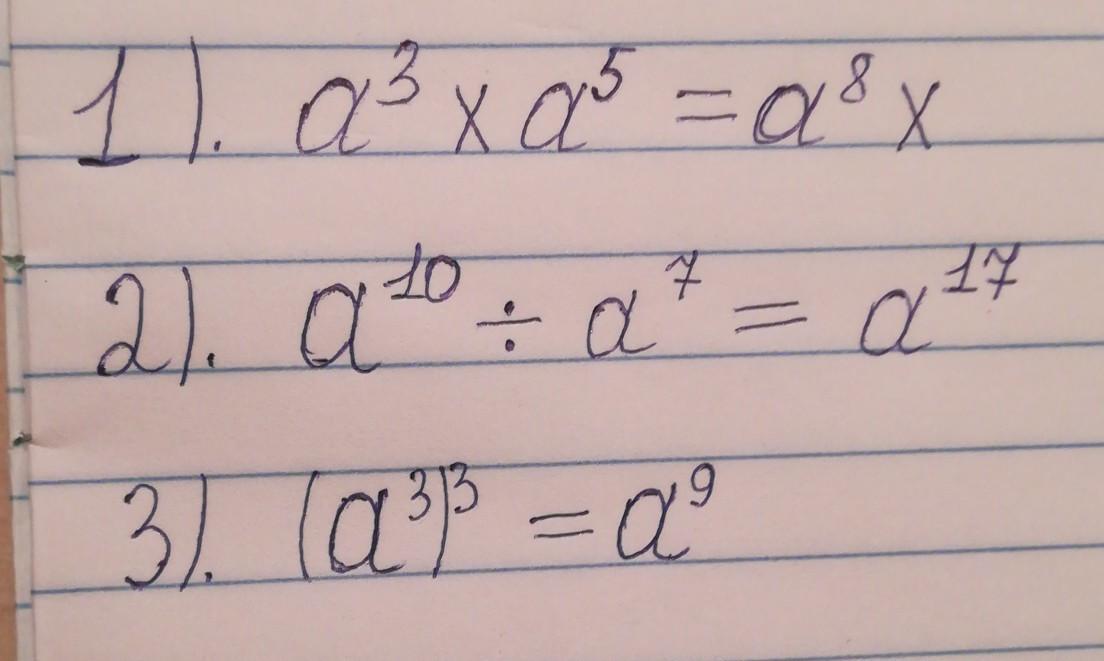 1). a³ x a⁵ = a⁸ x
2). a¹⁰ ÷ a⁷ = a¹⁷
3). (a³)³ = a⁹